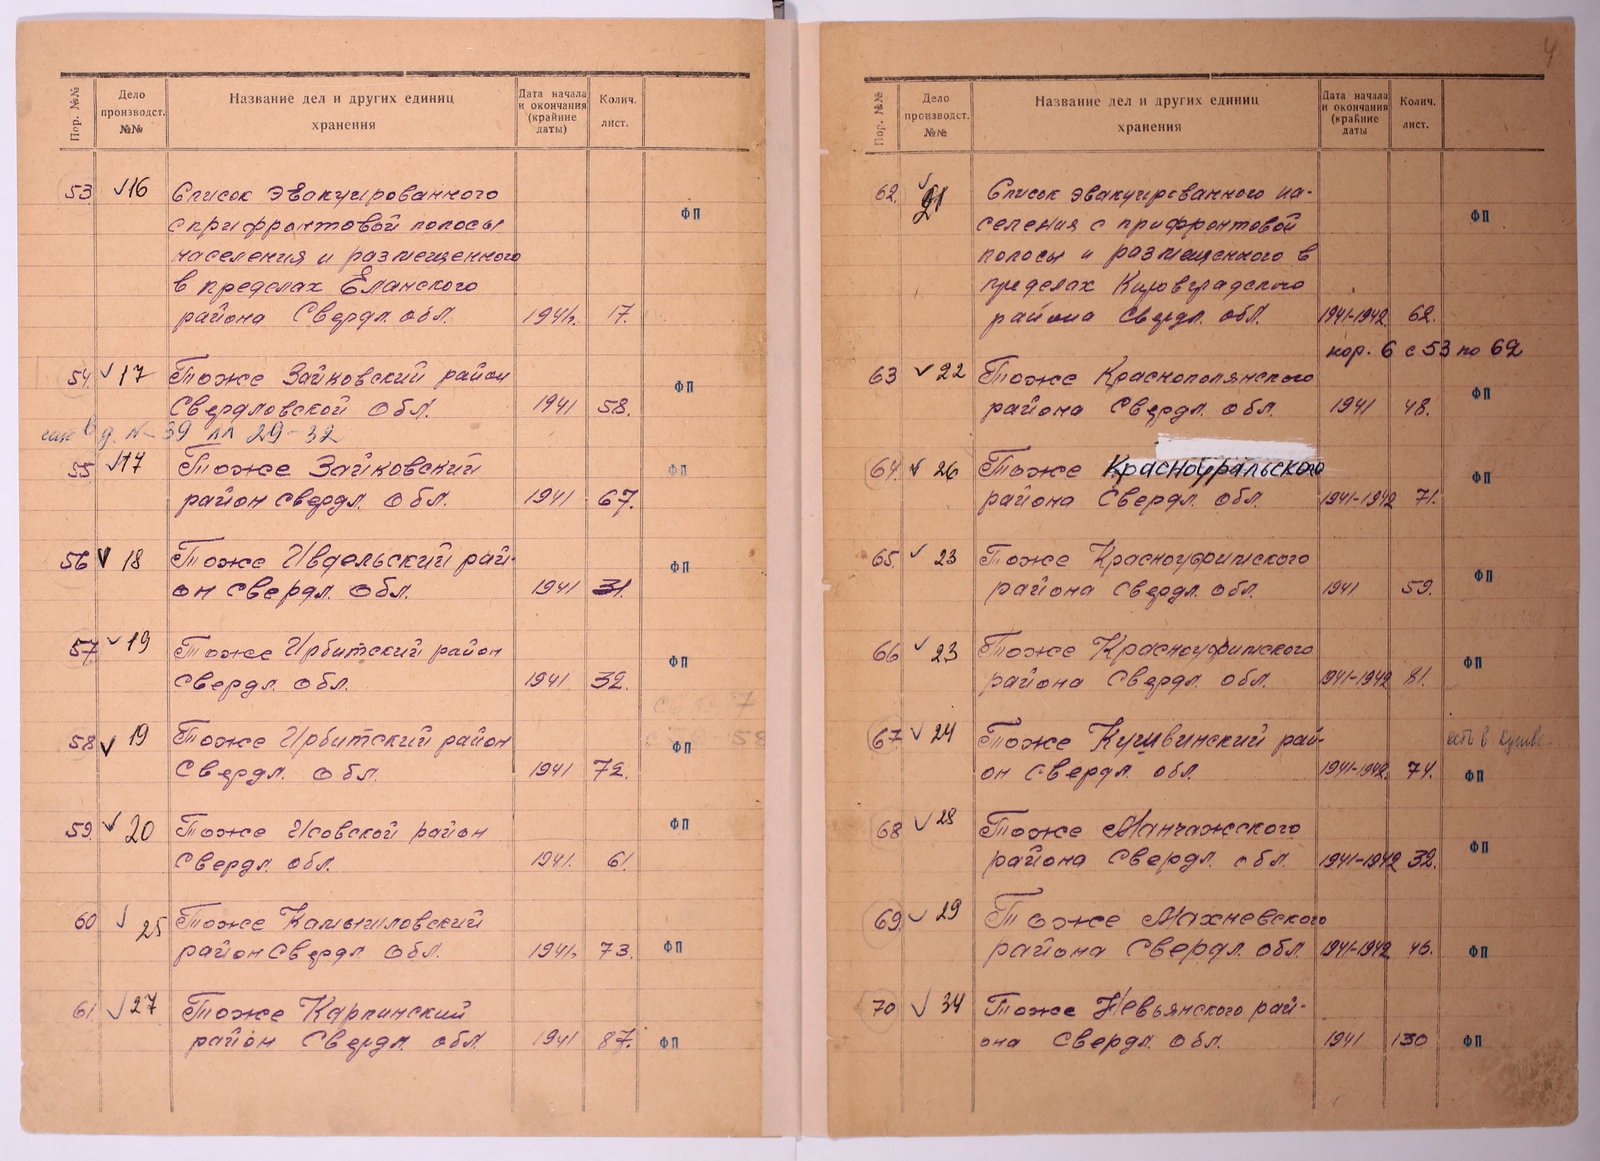 Пор. №№
Дело производст. №№
Название дел и других единиц хранения
Дата начала и окончания (крайние даты)
Колич. лист.
53 √16 Список эвакуированного
с прифронтовой полосы ФП
населения и размещенного
в пределах Еланского
района Свердл. обл. 1941г. 17.
54. √17 Тоже Зайковский район ФП
Свердловской Обл. 1941 58.
д. № 39 лл 29-32
55 √17 Тоже Зайковский ФП
район Свердл. Обл. 1941 67.
56 √ 18 Тоже Ивдельский рай- ФП
он Свердл. Обл. 1941 31.
57 √19 Тоже Ирбитский район ФП
Свердл. обл. 1941 32.
58 √ 19 Тоже Ирбитский район ФП
Свердл. Обл. 1941 72.
59. √ 20 Тоже Исовской район ФП
Свердл. обл. 1941. 61.
60 √ 25 Тоже Камышловский
район Свердл. Обл. 1941г. 73. ФП
61. √27 Тоже Карпинский
район Свердл. обл. 1941 87. ФП
4
Пор. №№
Дело производст. №№
Название дел и других единиц хранения
Дата начала и окончания (крайние даты
Колич. лист.
62. √ 21 Список эвакуированного на-
селения с прифронтовой ФП
полосы и размещенного в
пределах Кировградского
района Свердл. обл. 1941-1942 62.
кор. 6 с 53 по 62
63 √ 22 Тоже Краснополянского ФП
района Свердл. обл. 1941 48.
64. √ 26 Тоже Красноуральского ФП
района Свердл. обл. 1941-1942 71.
65. √ 23 Тоже Красноуфимского ФП
района Свердл. обл. 1941 59.
66 √ 23 Тоже Красноуфимского ФП
района Свердл. обл. 1941-1942 81.
67 √ 24 Тоже Кушвинский рай-
он Свердл. обл. 1941-1942. 74. ФП
68 √ 28 Тоже Манчажского
района Свердл. обл. 1941-1942 32. ФП
69. √ 29 Тоже Махневского
района Свердл. обл 1941-1942 46. ФП
70 √ 34 Тоже Невьянского рай-
она Свердл. Обл. 1941 130 ФП